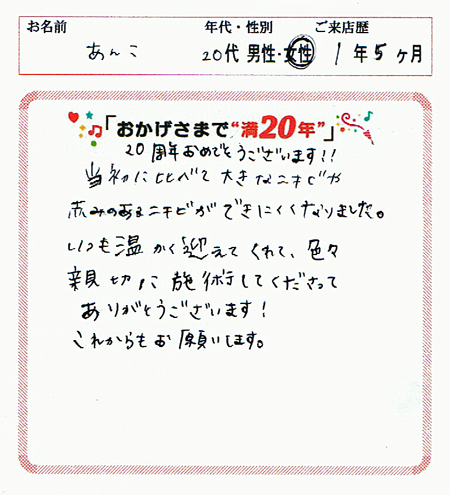 お名前 年代・性別 ご来店歴
あんこ 20代 男性・女性 1年5ヶ月
「おかげさまで“満20年”」
20周年おめでとうございます!!
当初に比べて大きなニキビや
赤みのあるニキビができにくくなりました。
いつも温かく迎えてくれて、色々
親切に施術してくださって
ありがとうございます!
これからもお願いします。